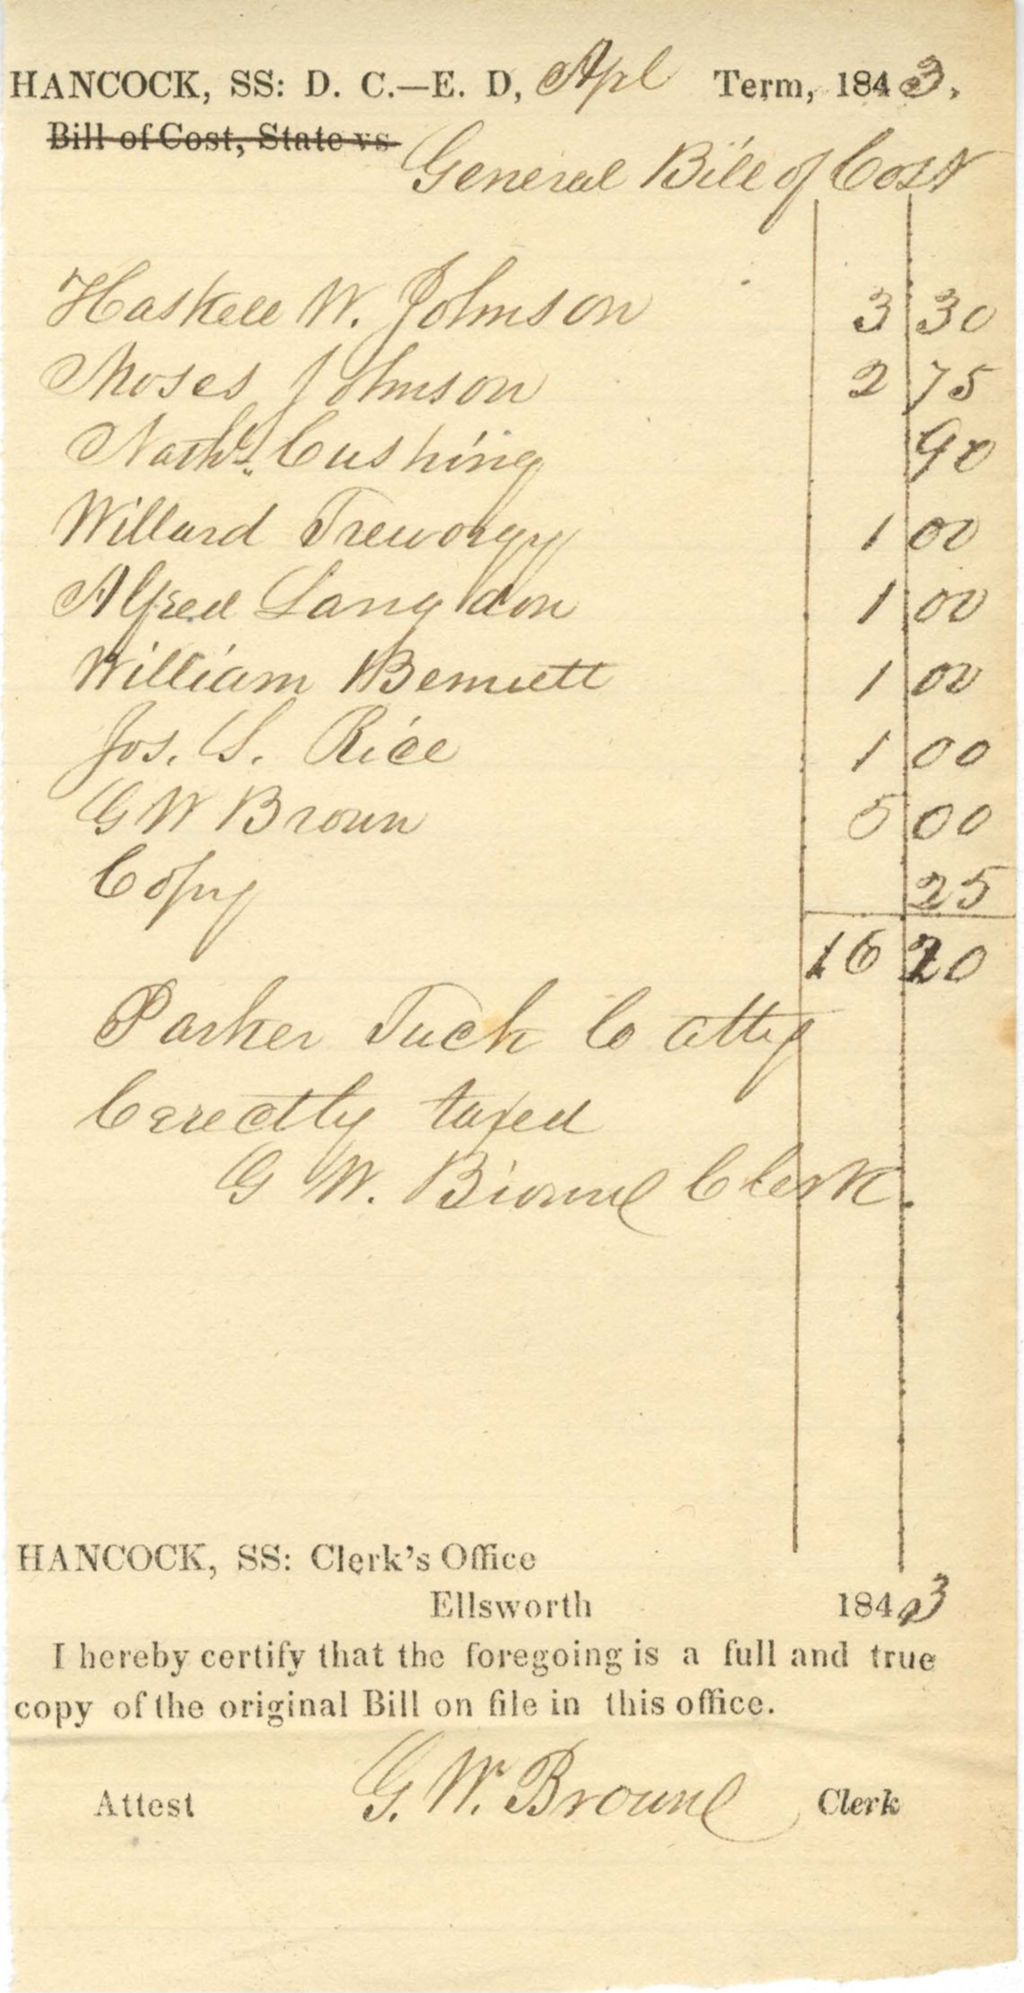 HANCOCK, SS: D. C.—E. D, Apl Term, 1843.
Bill of Cost, State vs
General Bill of Cost
Haskell W. Johnson 3 30
Moses Johnson 2 75
Nathl. Cushing 90
Willard Treworgy 1 00
Alfred Langdon 1 00
William Bennett 1 00
Jos. S. Rice 1 00
G W Brown 5 00
Copy 25
16 20
Parker Tuck Co atty
Correctly taxed
G W. Browne Clerk.
HANCOCK, SS: Clerk's Office
Ellsworth 1843
I hereby certify that the foregoing is a full and true
copy of the original Bill on file in this office.
Attest G. W. Browne Clerk